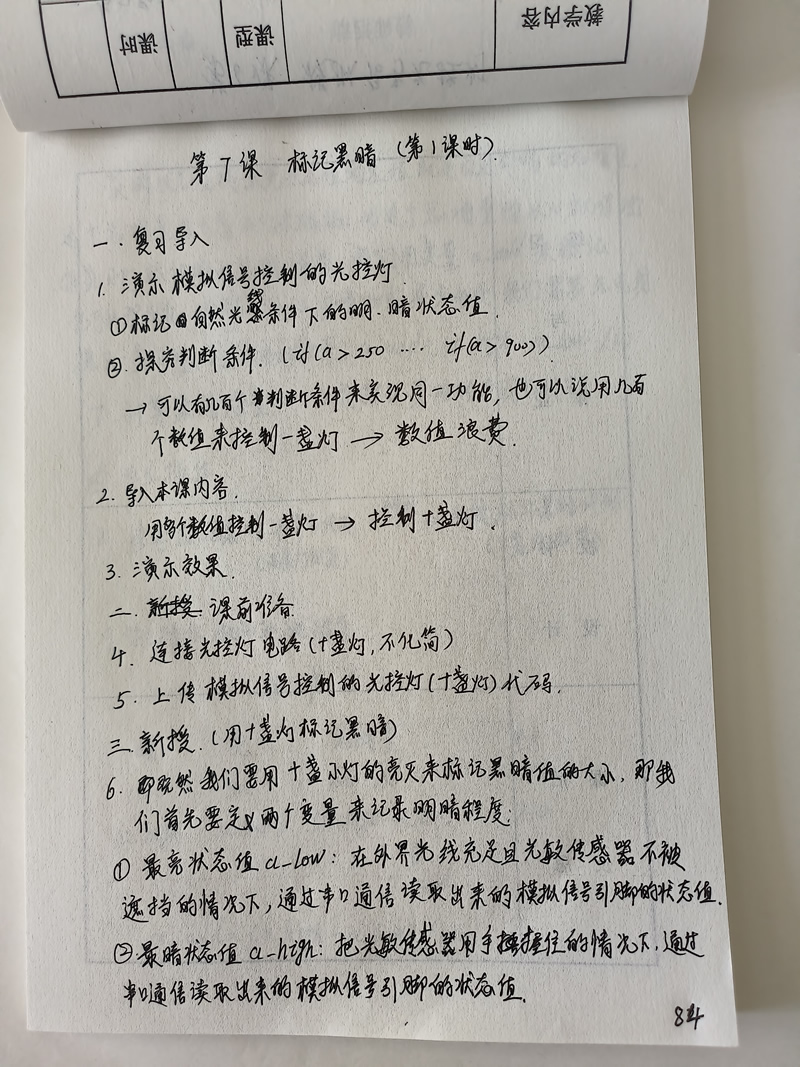 教学内容
课型
课时
第7课 标记黑暗(第1课时).
一.复习导入
1. 演示模拟信号控制的光控灯.
①标记自然光线条件下的明、暗状态值.
②.探究判断条件.(if(a>250 …. if(a>900))
→可以有几百个判断条件来实现同一功能,也可以说用几百
个数值来控制一盏灯→数值浪费.
2. 导入本课内容.
用多个数值控制一盏灯→控制十盏灯.
3. 演示效果.
二.课前准备
4. 连接光控灯电路(十盏灯,不化简)
5. 上传模拟信号控制的光控灯(十盏灯)代码.
三.新授.(用十盏灯标记黑暗)
6. 既然我们要用十盏小灯的亮灭来标记黑暗值的大小,那我
们首先要定义两个变量来记录明暗程度:
①最亮状态值a_low:在外界光线充足且光敏传感器不被
遮挡的情况下,通过串口通信读取出来的模拟信号引脚的状态值.
②最暗状态值a_high:把光敏传感器用手握住的情况下,通过
串口通信读取出来的模拟信号引脚的状态值.
84